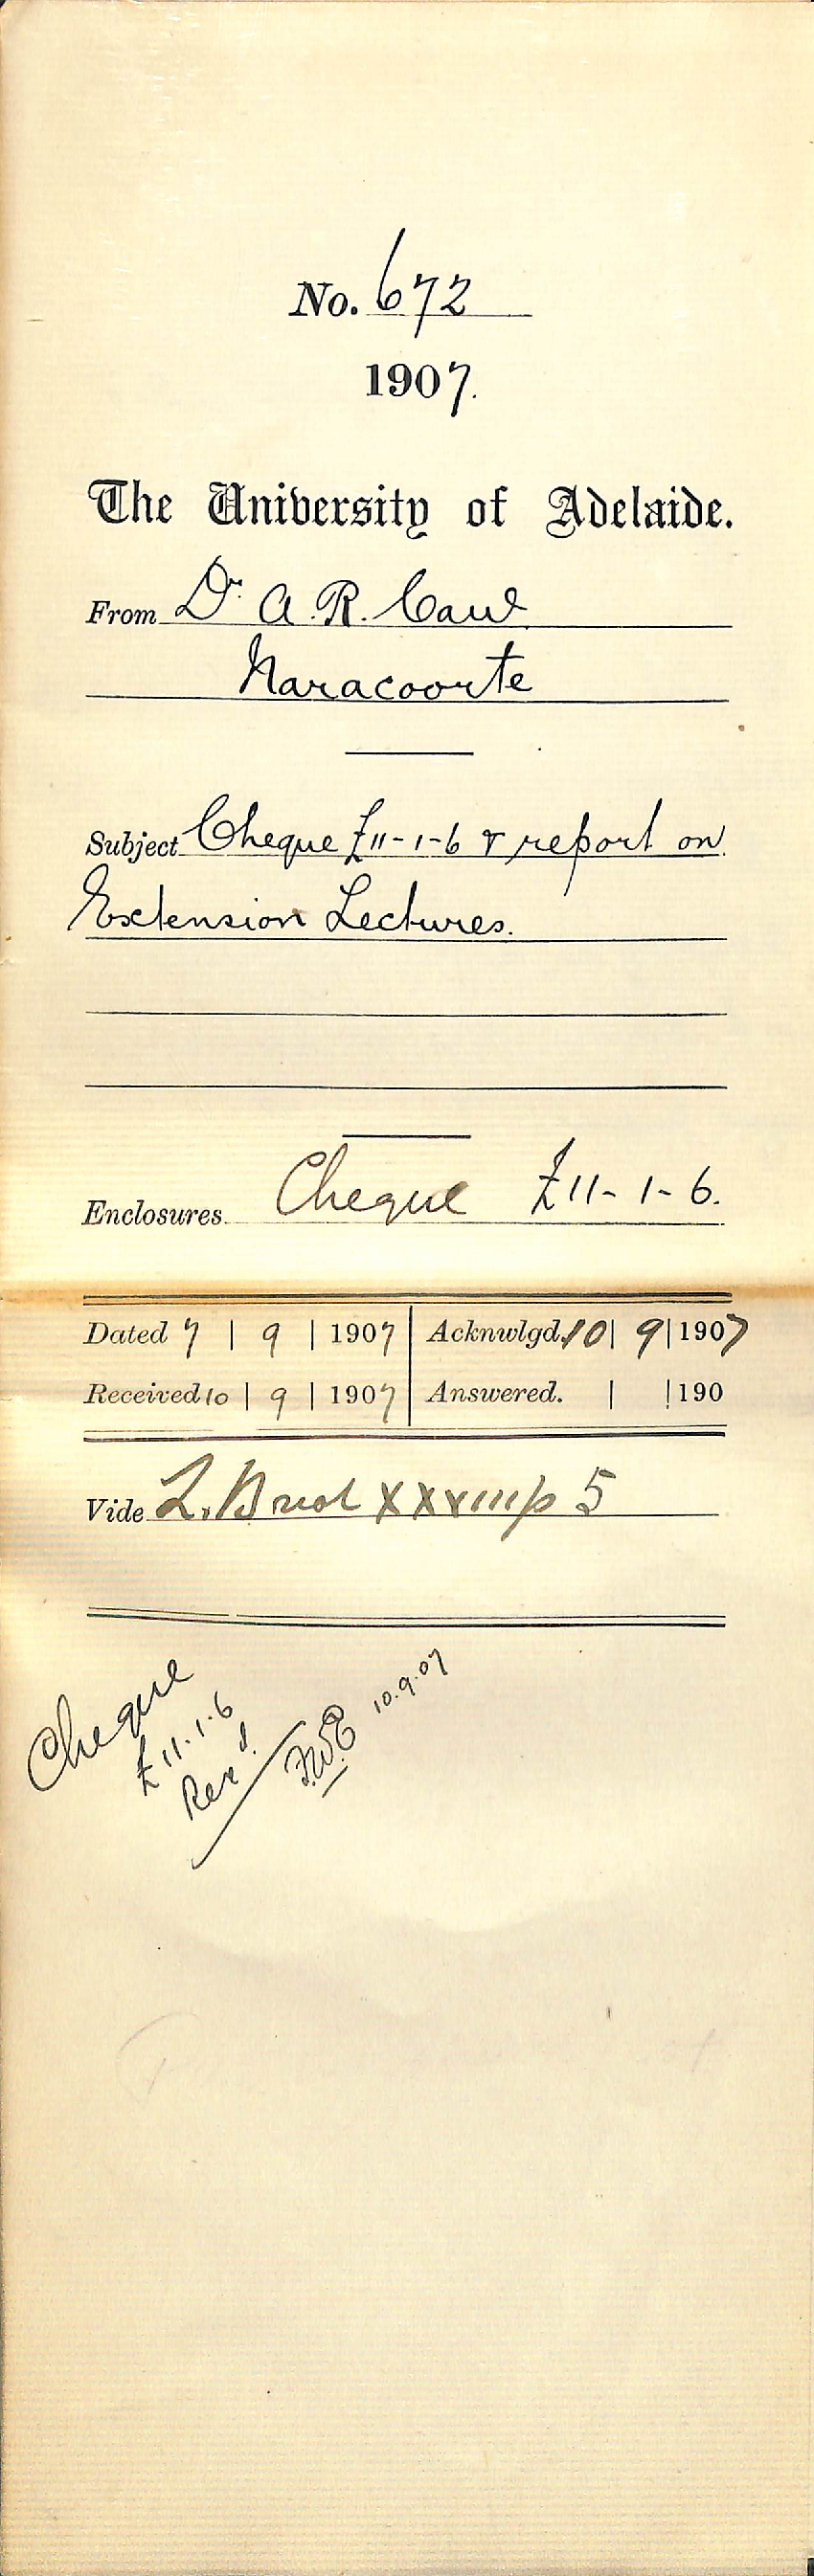 No. 672
1907.
The University of Adelaide.
From Dr. A. R. Caw
Naracoorte
Subject Cheque £11-1-6 & report on
Extension Lectures.
Enclosures. Cheque £11-1-6.
Dated 7 | 9 | 1907 Acknwlgd. 10 | 9 | 1907
Received 10 | 9 | 1907 Answered. | | 190
Vide L. XXVIII p 5
Cheque
£11.1.6
Recd.
10.9.07